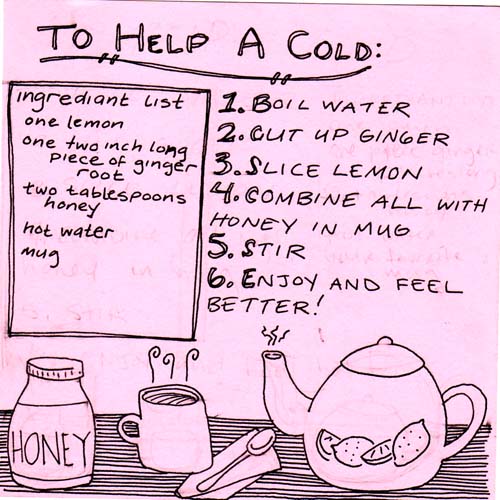 TO HELP A COLD:
ingrediant list
one lemon
one two inch long
piece of ginger
root
two tablespoons
honey
hot water
mug
1. BOIL WATER
2. CUT UP GINGER
3. SLICE LEMON
4. COMBINE ALL WITH
HONEY IN MUG
5. STIR
6. ENJOY AND FEEL
BETTER!
HONEY